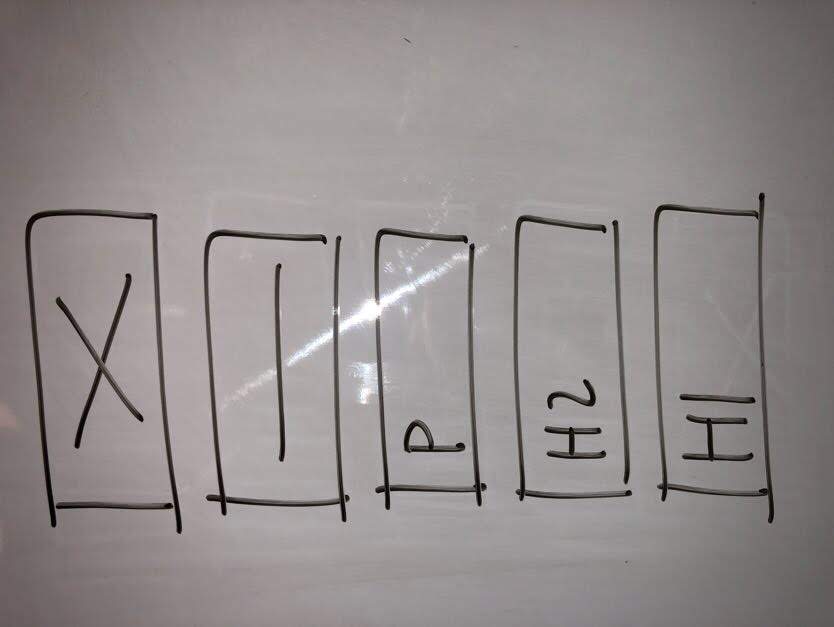 P
H2
H1